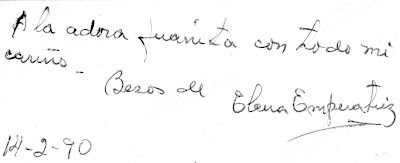 A la adora Juanita con todo mi
cariño -
Besos de Elena Emperatriz
14-2-90